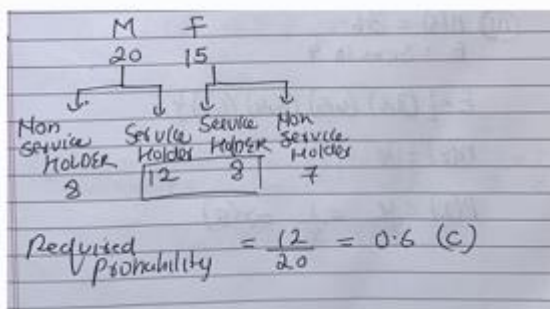 M F
20 15
Non Service HOLDER Service Holder Service HOLDER Non Service Holder
8 12 8 7
Required Probability = 12/20 = 0.6 (C)